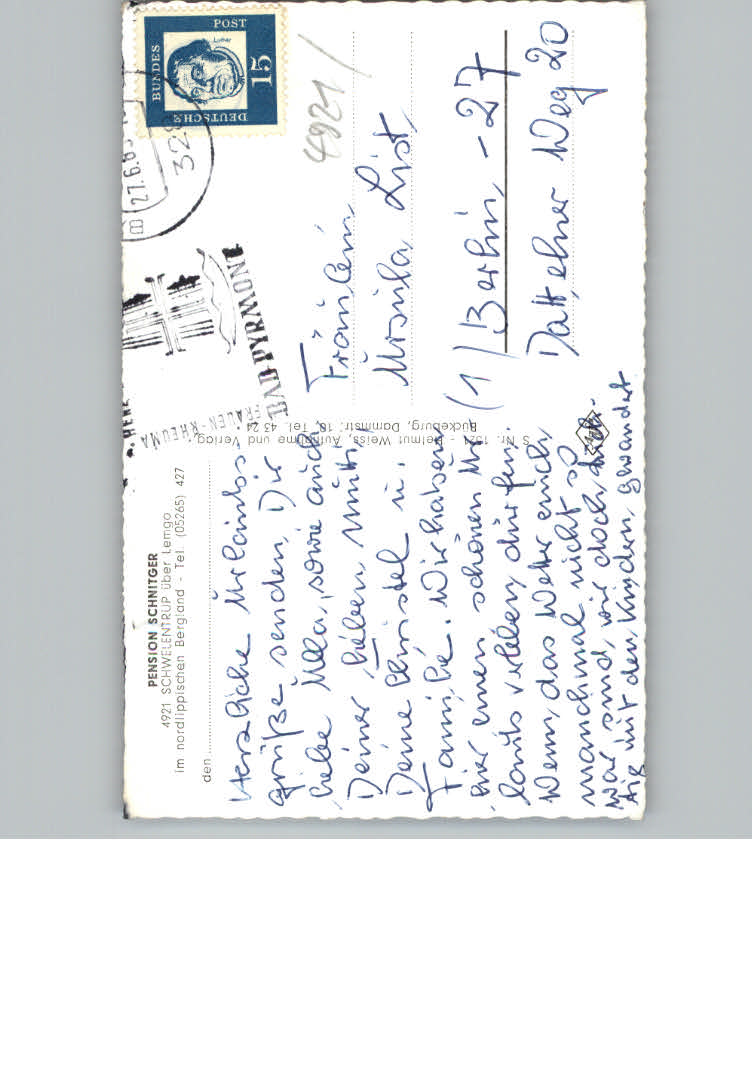 PENSION SCHNITGER
4921 SCHWELENTRUP über Lemgo
im nordlippischen Bergland - Tel. (05265) 427
den
Herzliche Urlaubs-
grüße senden Dir
liebe Ulla, sowie auch
Deiner lieben Mutti,
Deine Christel u.
Familie. Wir haben
hier einen schönen Ur-
laub verleben dürfen.
Wenn das Wetter auch
manchmal nicht so
war, sind wir doch
mit den Kindern gewandert
S Nr. 1521 - Helmut Weiss, Aufnahme und Verlag,
Bückeburg, Dammstr. 18, Tel. 43 24
FRAUEN-RHEUMA
BAD PYRMONT
27.6.6
328
DEUTSCHE
BUNDES
POST
Luther
15
4921/
Fräulein
Ursula List
(1) Berlin -27
Dattelner Weg 20